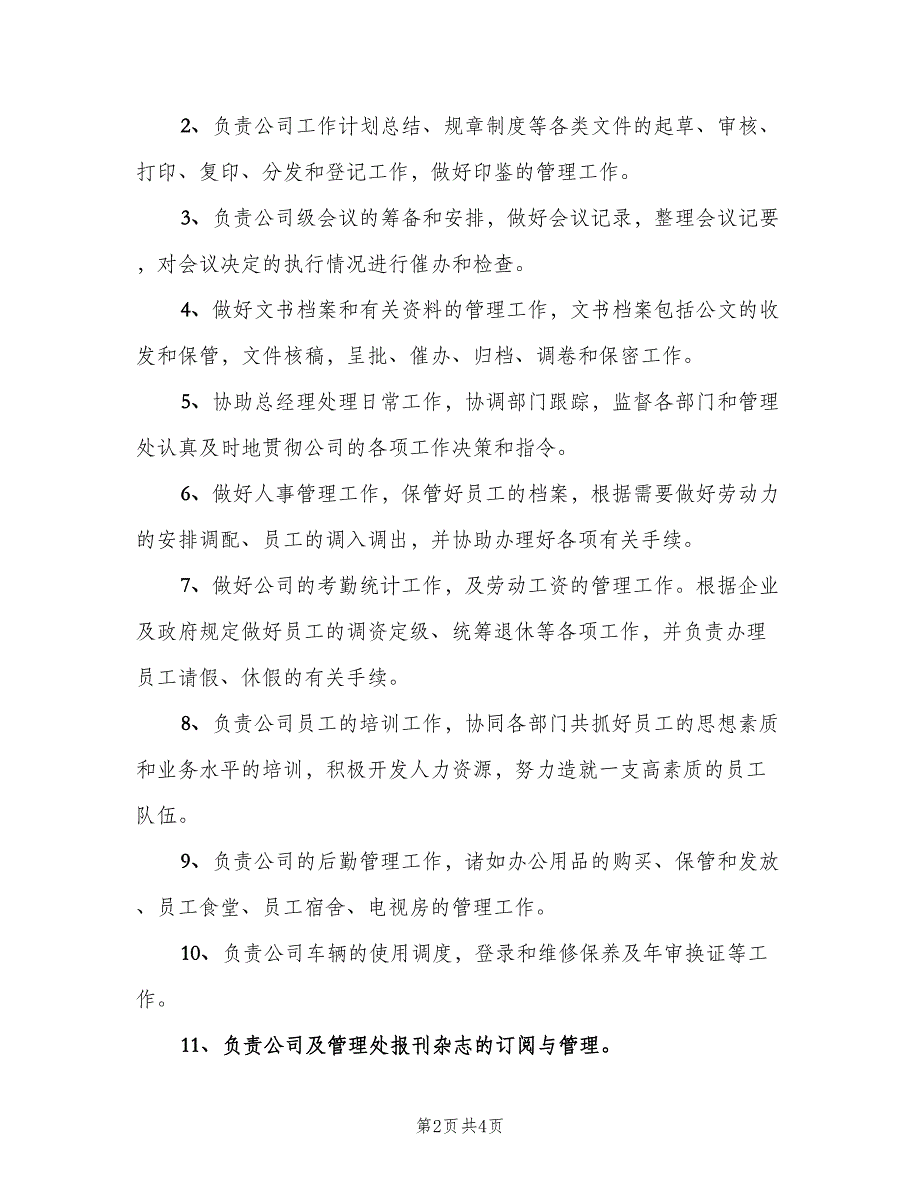 2、负责公司工作计划总结、规章制度等各类文件的起草、审核、
打印、复印、分发和登记工作，做好印鉴的管理工作。
3、负责公司级会议的筹备和安排，做好会议记录，整理会议记要
，对会议决定的执行情况进行催办和检查。
4、做好文书档案和有关资料的管理工作，文书档案包括公文的收
发和保管，文件核稿，呈批、催办、归档、调卷和保密工作。
5、协助总经理处理日常工作，协调部门跟踪，监督各部门和管理
处认真及时地贯彻公司的各项工作决策和指令。
6、做好人事管理工作，保管好员工的档案，根据需要做好劳动力
的安排调配、员工的调入调出，并协助办理好各项有关手续。
7、做好公司的考勤统计工作，及劳动工资的管理工作。根据企业
及政府规定做好员工的调资定级、统筹退休等各项工作，并负责办理
员工请假、休假的有关手续。
8、负责公司员工的培训工作，协同各部门共抓好员工的思想素质
和业务水平的培训，积极开发人力资源，努力造就一支高素质的员工
队伍。
9、负责公司的后勤管理工作，诸如办公用品的购买、保管和发放
、员工食堂、员工宿舍、电视房的管理工作。
10、负责公司车辆的使用调度，登录和维修保养及年审换证等工
作。
11、负责公司及管理处报刊杂志的订阅与管理。
第2页共4页